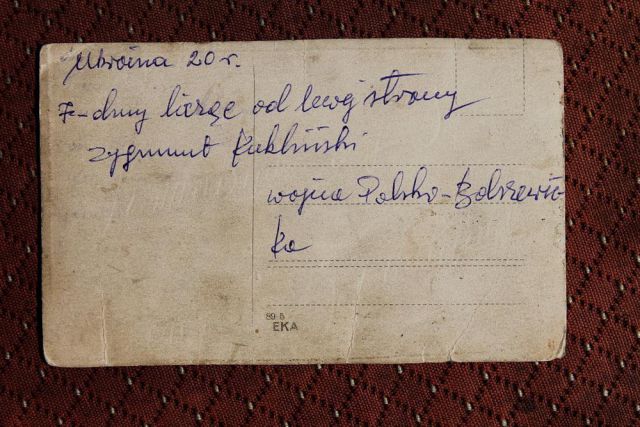 Ukraina 20 r.
7-dmy licząc od lewej strony
Zygmunt Kukliński
wojna Polsko-Bolszewic
ka
89 5
EKA